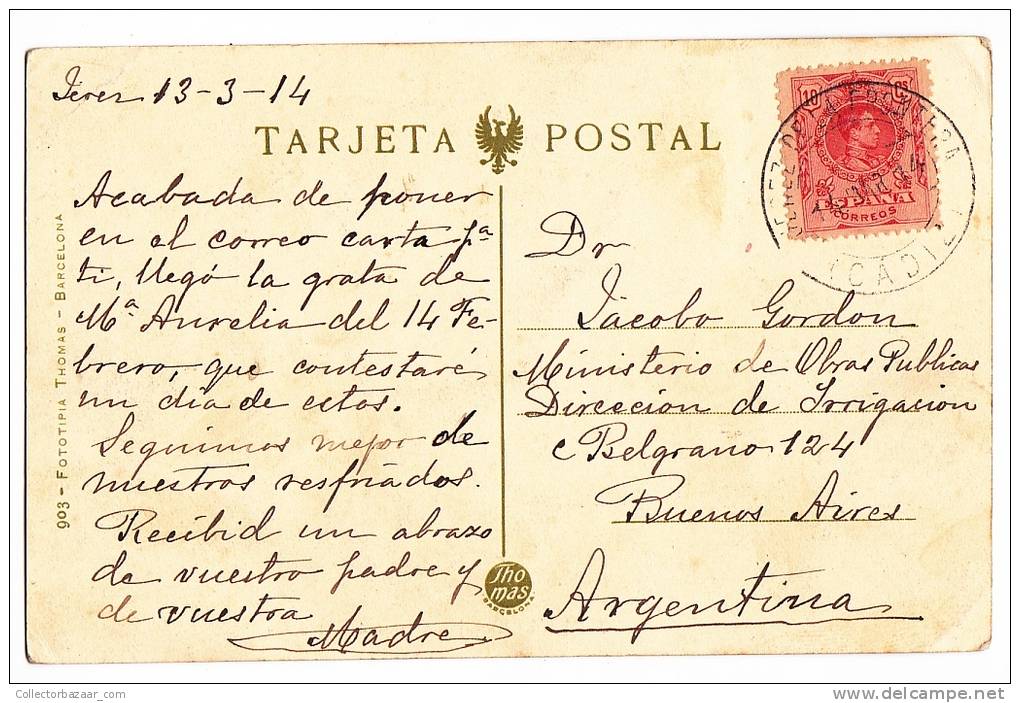 Jerez 13-3-14
TARJETA POSTAL
Acabada de poner
en el correo carta pª
ti, llegó la grata de
Mª Aurelia del 14 Fe-
brero, que contestaré
un dia de estos.
Seguimos mejor de
nuestros resfriados.
Recibid un abrazo
de vuestro padre y
de vuestra
Madre
903 - FOTOTIPIA THOMAS - BARCELONA
Thomas
BARCELONA
10 Cs
ESPAÑA
CORREOS
JEREZ DE LA FRONTERA
MAR 14
(CADIZ)
Dr
Jacobo Gordon
Ministerio de Obras Publicas
Direccion de Irrigacion
c Belgrano 124
Buenos Aires
Argentina
CollectorBazaar_com
www.delcampe.net